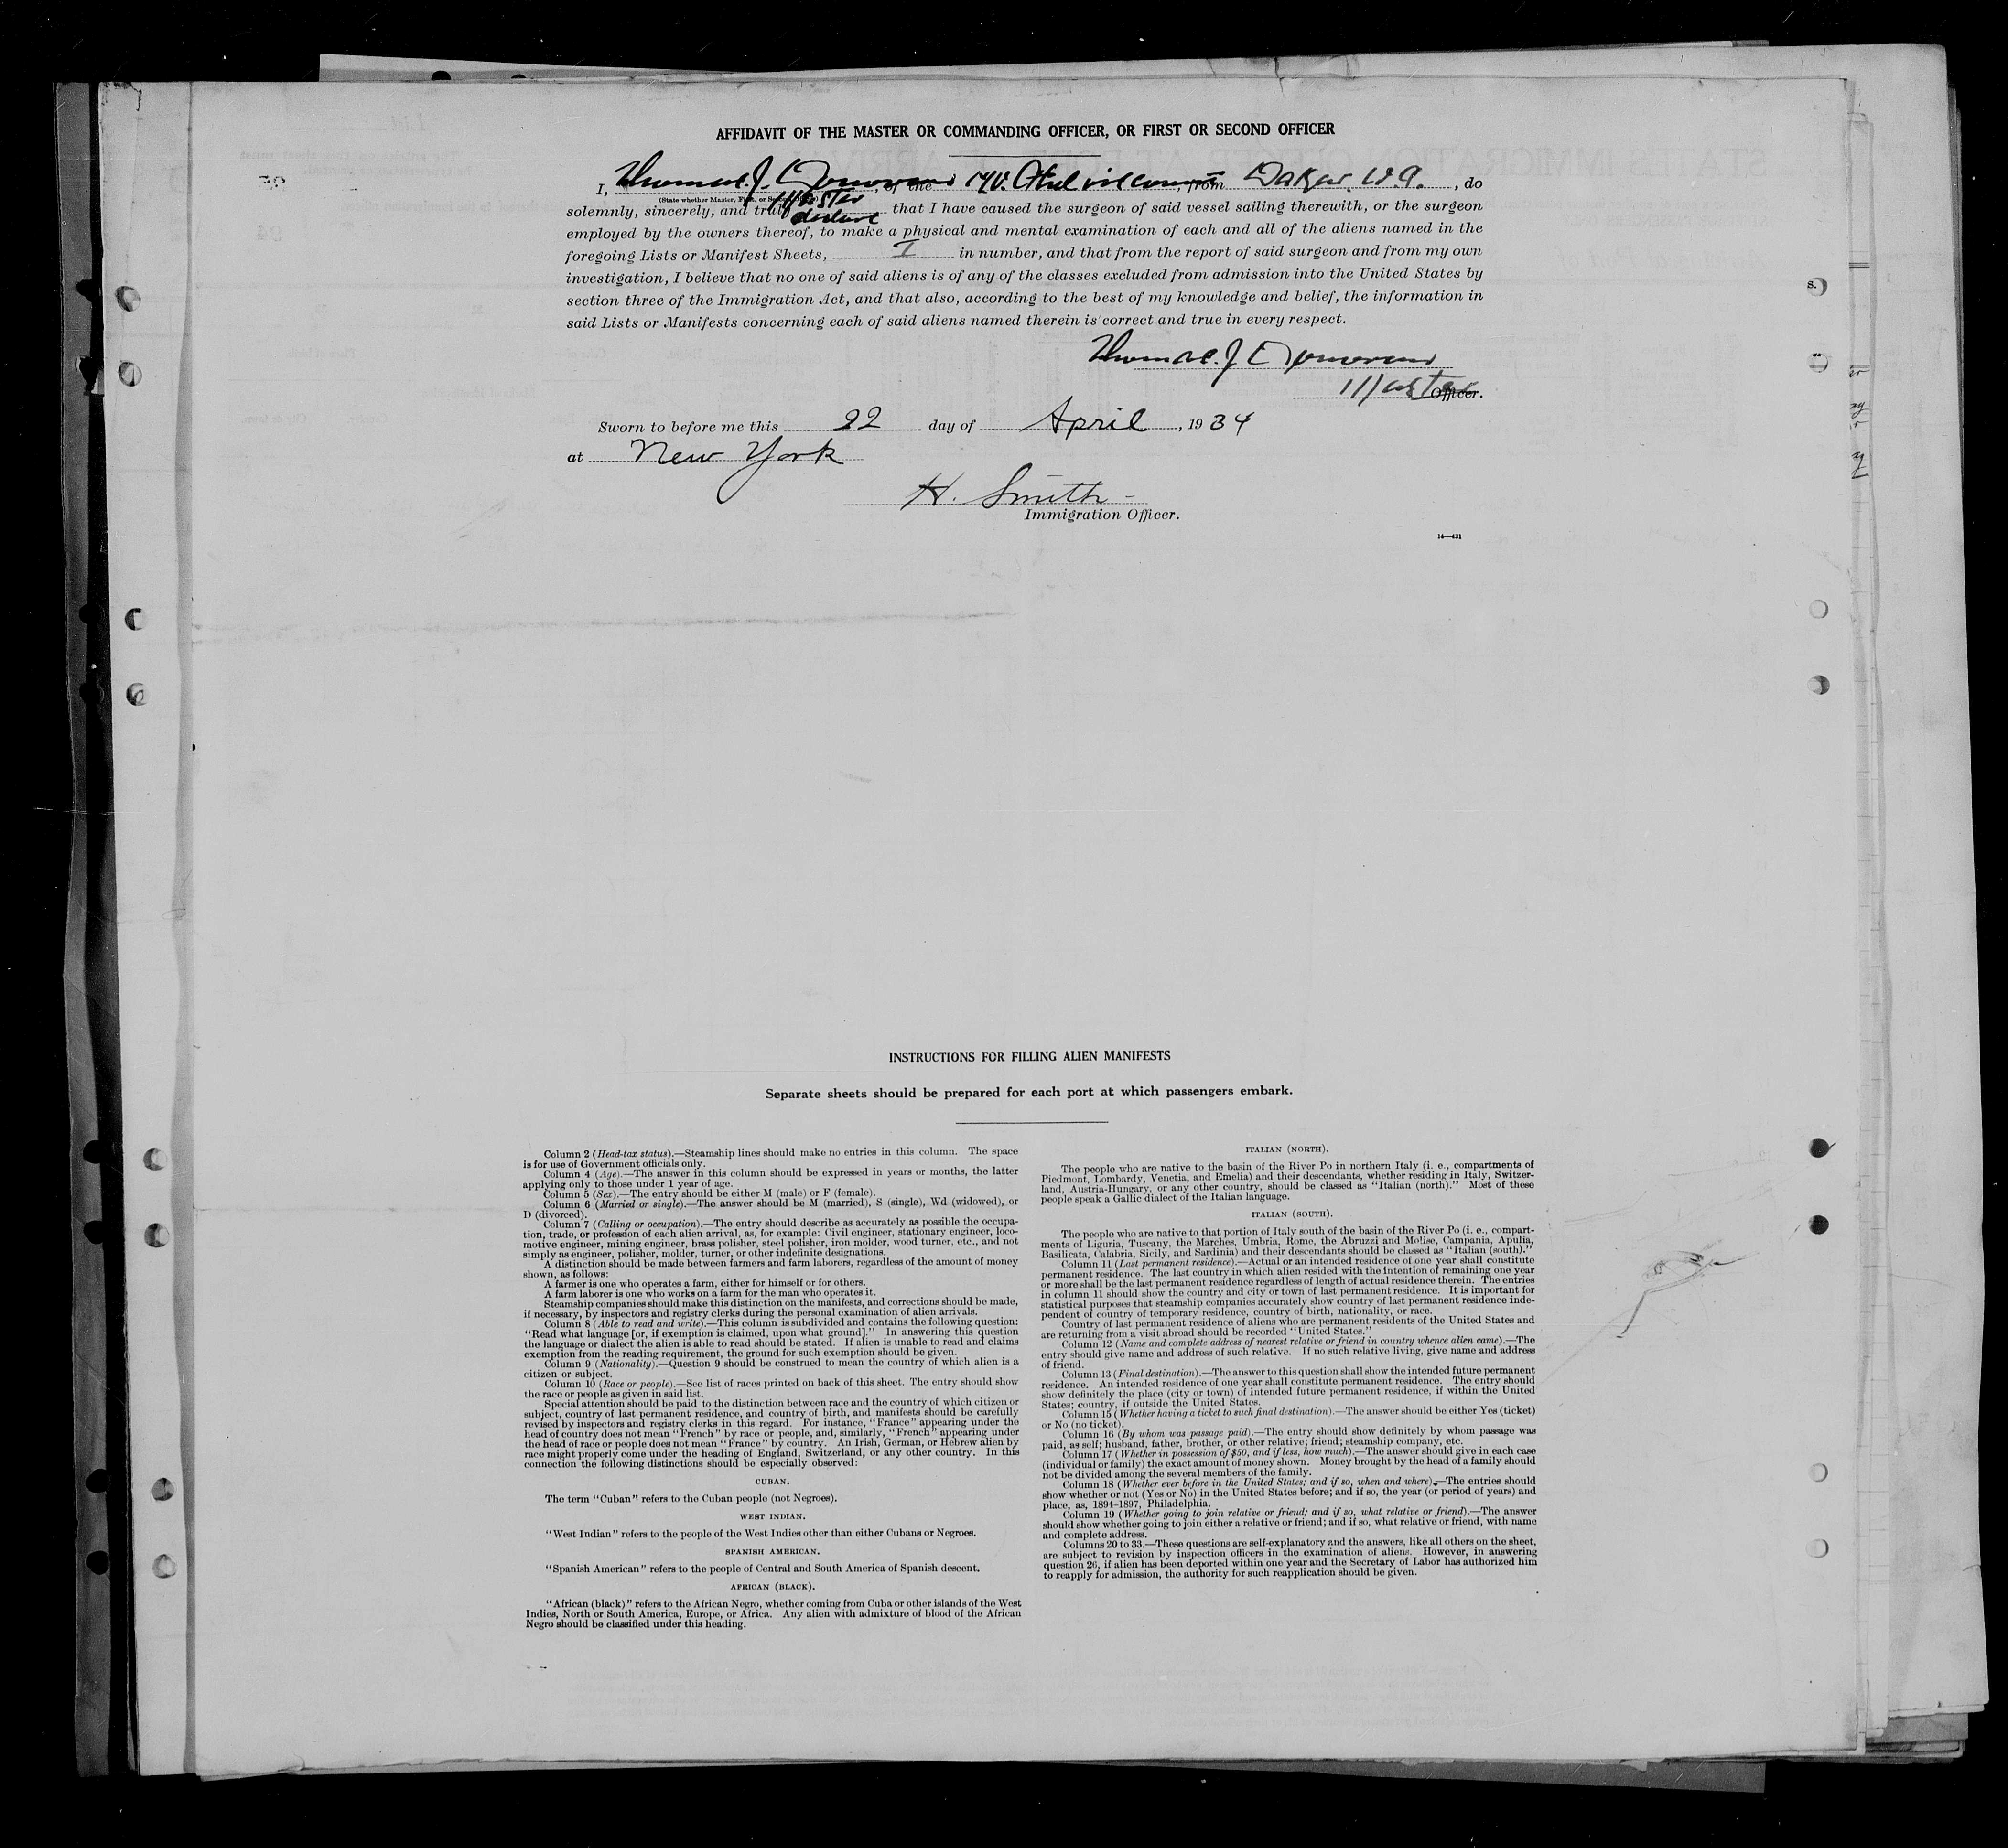 AFFIDAVIT OF THE MASTER OR COMMANDING OFFICER, OR FIRST OR SECOND OFFICER
I, Thomas J. Donovan, of the M.V. from Dakar, W.A., do
(State whether Master, First, or Second Officer) Master
solemnly, sincerely, and truly declare that I have caused the surgeon of said vessel sailing therewith, or the surgeon
employed by the owners thereof, to make a physical and mental examination of each and all of the aliens named in the
foregoing Lists or Manifest Sheets, I in number, and that from the report of said surgeon and from my own
investigation, I believe that no one of said aliens is of any of the classes excluded from admission into the United States by
section three of the Immigration Act, and that also, according to the best of my knowledge and belief, the information in
said Lists or Manifests concerning each of said aliens named therein is correct and true in every respect.
Thomas J Donovan
Master Officer.
Sworn to before me this 22 day of April, 1934
at New York
H. Smith
Immigration Officer.
14—431
INSTRUCTIONS FOR FILLING ALIEN MANIFESTS
Separate sheets should be prepared for each port at which passengers embark.
Column 2 (Head-tax status).—Steamship lines should make no entries in this column. The space
is for use of Government officials only.
Column 4 (Age).—The answer in this column should be expressed in years or months, the latter
applying only to those under 1 year of age.
Column 5 (Sex).—The entry should be either M (male) or F (female).
Column 6 (Married or single).—The answer should be M (married), S (single), Wd (widowed), or
D (divorced).
Column 7 (Calling or occupation).—The entry should describe as accurately as possible the occupa-
tion, trade, or profession of each alien arrival, as, for example: Civil engineer, stationary engineer, loco-
motive engineer, mining engineer, brass polisher, steel polisher, iron molder, wood turner, etc., and not
simply as engineer, polisher, molder, turner, or other indefinite designations.
A distinction should be made between farmers and farm laborers, regardless of the amount of money
shown, as follows:
A farmer is one who operates a farm, either for himself or for others.
A farm laborer is one who works on a farm for the man who operates it.
Steamship companies should make this distinction on the manifests, and corrections should be made,
if necessary, by inspectors and registry clerks during the personal examination of alien arrivals.
Column 8 (Able to read and write).—This column is subdivided and contains the following question:
"Read what language [or, if exemption is claimed, upon what ground]." In answering this question
the language or dialect the alien is able to read should be stated. If alien is unable to read and claims
exemption from the reading requirement, the ground for such exemption should be given.
Column 9 (Nationality).—Question 9 should be construed to mean the country of which alien is a
citizen or subject.
Column 10 (Race or people).—See list of races printed on back of this sheet. The entry should show
the race or people as given in said list.
Special attention should be paid to the distinction between race and the country of which citizen or
subject, country of last permanent residence, and country of birth, and manifests should be carefully
revised by inspectors and registry clerks in this regard. For instance, "France" appearing under the
head of country does not mean "French" by race or people, and, similarly, "French" appearing under
the head of race or people does not mean "France" by country. An Irish, German, or Hebrew alien by
race might properly come under the heading of England, Switzerland, or any other country. In this
connection the following distinctions should be especially observed:
CUBAN.
The term "Cuban" refers to the Cuban people (not Negroes).
WEST INDIAN.
"West Indian" refers to the people of the West Indies other than either Cubans or Negroes.
SPANISH AMERICAN.
"Spanish American" refers to the people of Central and South America of Spanish descent.
AFRICAN (BLACK).
"African (black)" refers to the African Negro, whether coming from Cuba or other islands of the West
Indies, North or South America, Europe, or Africa. Any alien with admixture of blood of the African
Negro should be classified under this heading.
ITALIAN (NORTH).
The people who are native to the basin of the River Po in northern Italy (i. e., compartments of
Piedmont, Lombardy, Venetia, and Emelia) and their descendants, whether residing in Italy, Switzer-
land, Austria-Hungary, or any other country, should be classed as "Italian (north)." Most of these
people speak a Gallic dialect of the Italian language.
ITALIAN (SOUTH).
The people who are native to that portion of Italy south of the basin of the River Po (i. e., compart-
ments of Liguria, Tuscany, the Marches, Umbria, Rome, the Abruzzi and Molise, Campania, Apulia,
Basilicata, Calabria, Sicily, and Sardinia) and their descendants should be classed as "Italian (south)."
Column 11 (Last permanent residence).—Actual or an intended residence of one year shall constitute
permanent residence. The last country in which alien resided with the intention of remaining one year
or more shall be the last permanent residence regardless of length of actual residence therein. The entries
in column 11 should show the country and city or town of last permanent residence. It is important for
statistical purposes that steamship companies accurately show country of last permanent residence inde-
pendent of country of temporary residence, country of birth, nationality, or race.
Country of last permanent residence of aliens who are permanent residents of the United States and
are returning from a visit abroad should be recorded "United States."
Column 12 (Name and complete address of nearest relative or friend in country whence alien came).—The
entry should give name and address of such relative. If no such relative living, give name and address
of friend.
Column 13 (Final destination).—The answer to this question shall show the intended future permanent
residence. An intended residence of one year shall constitute permanent residence. The entry should
show definitely the place (city or town) of intended future permanent residence, if within the United
States; country, if outside the United States.
Column 15 (Whether having a ticket to such final destination).—The answer should be either Yes (ticket)
or No (no ticket).
Column 16 (By whom was passage paid).—The entry should show definitely by whom passage was
paid, as self; husband, father, brother, or other relative; friend; steamship company, etc.
Column 17 (Whether in possession of $50, and if less, how much).—The answer should give in each case
(individual or family) the exact amount of money shown. Money brought by the head of a family should
not be divided among the several members of the family.
Column 18 (Whether ever before in the United States; and if so, when and where).—The entries should
show whether or not (Yes or No) in the United States before; and if so, the year (or period of years) and
place, as, 1894-1897, Philadelphia.
Column 19 (Whether going to join relative or friend; and if so, what relative or friend).—The answer
should show whether going to join either a relative or friend; and if so, what relative or friend, with name
and complete address.
Columns 20 to 33.—These questions are self-explanatory and the answers, like all others on the sheet,
are subject to revision by inspection officers in the examination of aliens. However, in answering
question 26, if alien has been deported within one year and the Secretary of Labor has authorized him
to reapply for admission, the authority for such reapplication should be given.